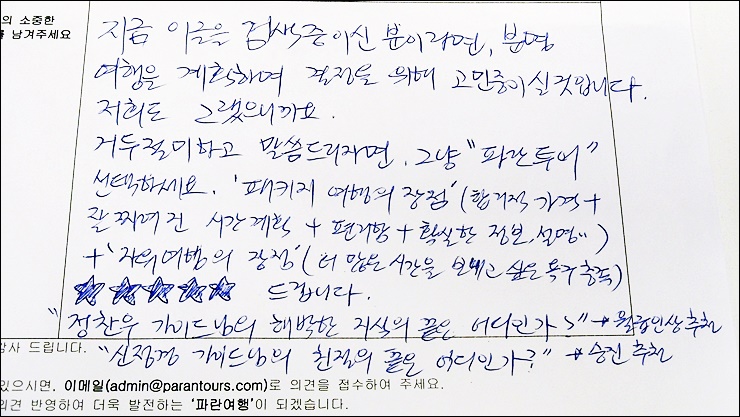 의 소중한
를 남겨주세요
지금 이글을 검색중이신 분이라면, 분명
여행을 계획하며 결정을 위해 고민중이실것입니다.
저희도 그랬으니까요.
거두절미하고 말씀드리자면, 그냥 "파란투어"
선택하세요. '패키지 여행의 장점' (합리적 가격 +
잘 짜여진 시간계획 + 편리함 + 확실한 정보, 설명 )
+ '자유여행의 장점' (더 많은 시간을 보내고 싶은 욕구 충족)
☆☆☆☆☆ 드립니다.
"정찬우 가이드님의 해박한 지식의 끝은 어디인가?" → 월급인상 추천
감사 드립니다. "신정경 가이드님의 친절의 끝은 어디인가?" → 승진 추천
있으시면, 이메일(admin@parantours.com)로 의견을 접수하여 주세요.
의견 반영하여 더욱 발전하는 '파란여행'이 되겠습니다.